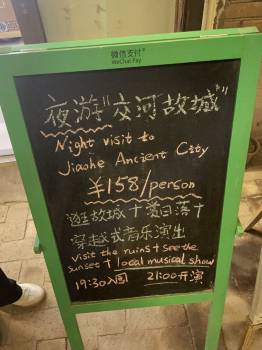 微信支付
WeChat Pay
夜游"交河故城"
Night visit to
Jiaohe Ancient City
¥158/person
逛故城+赏日落+
穿越式音乐演出
visit the ruins + see the
sunset + local musical show
19:30入园 21:00开演